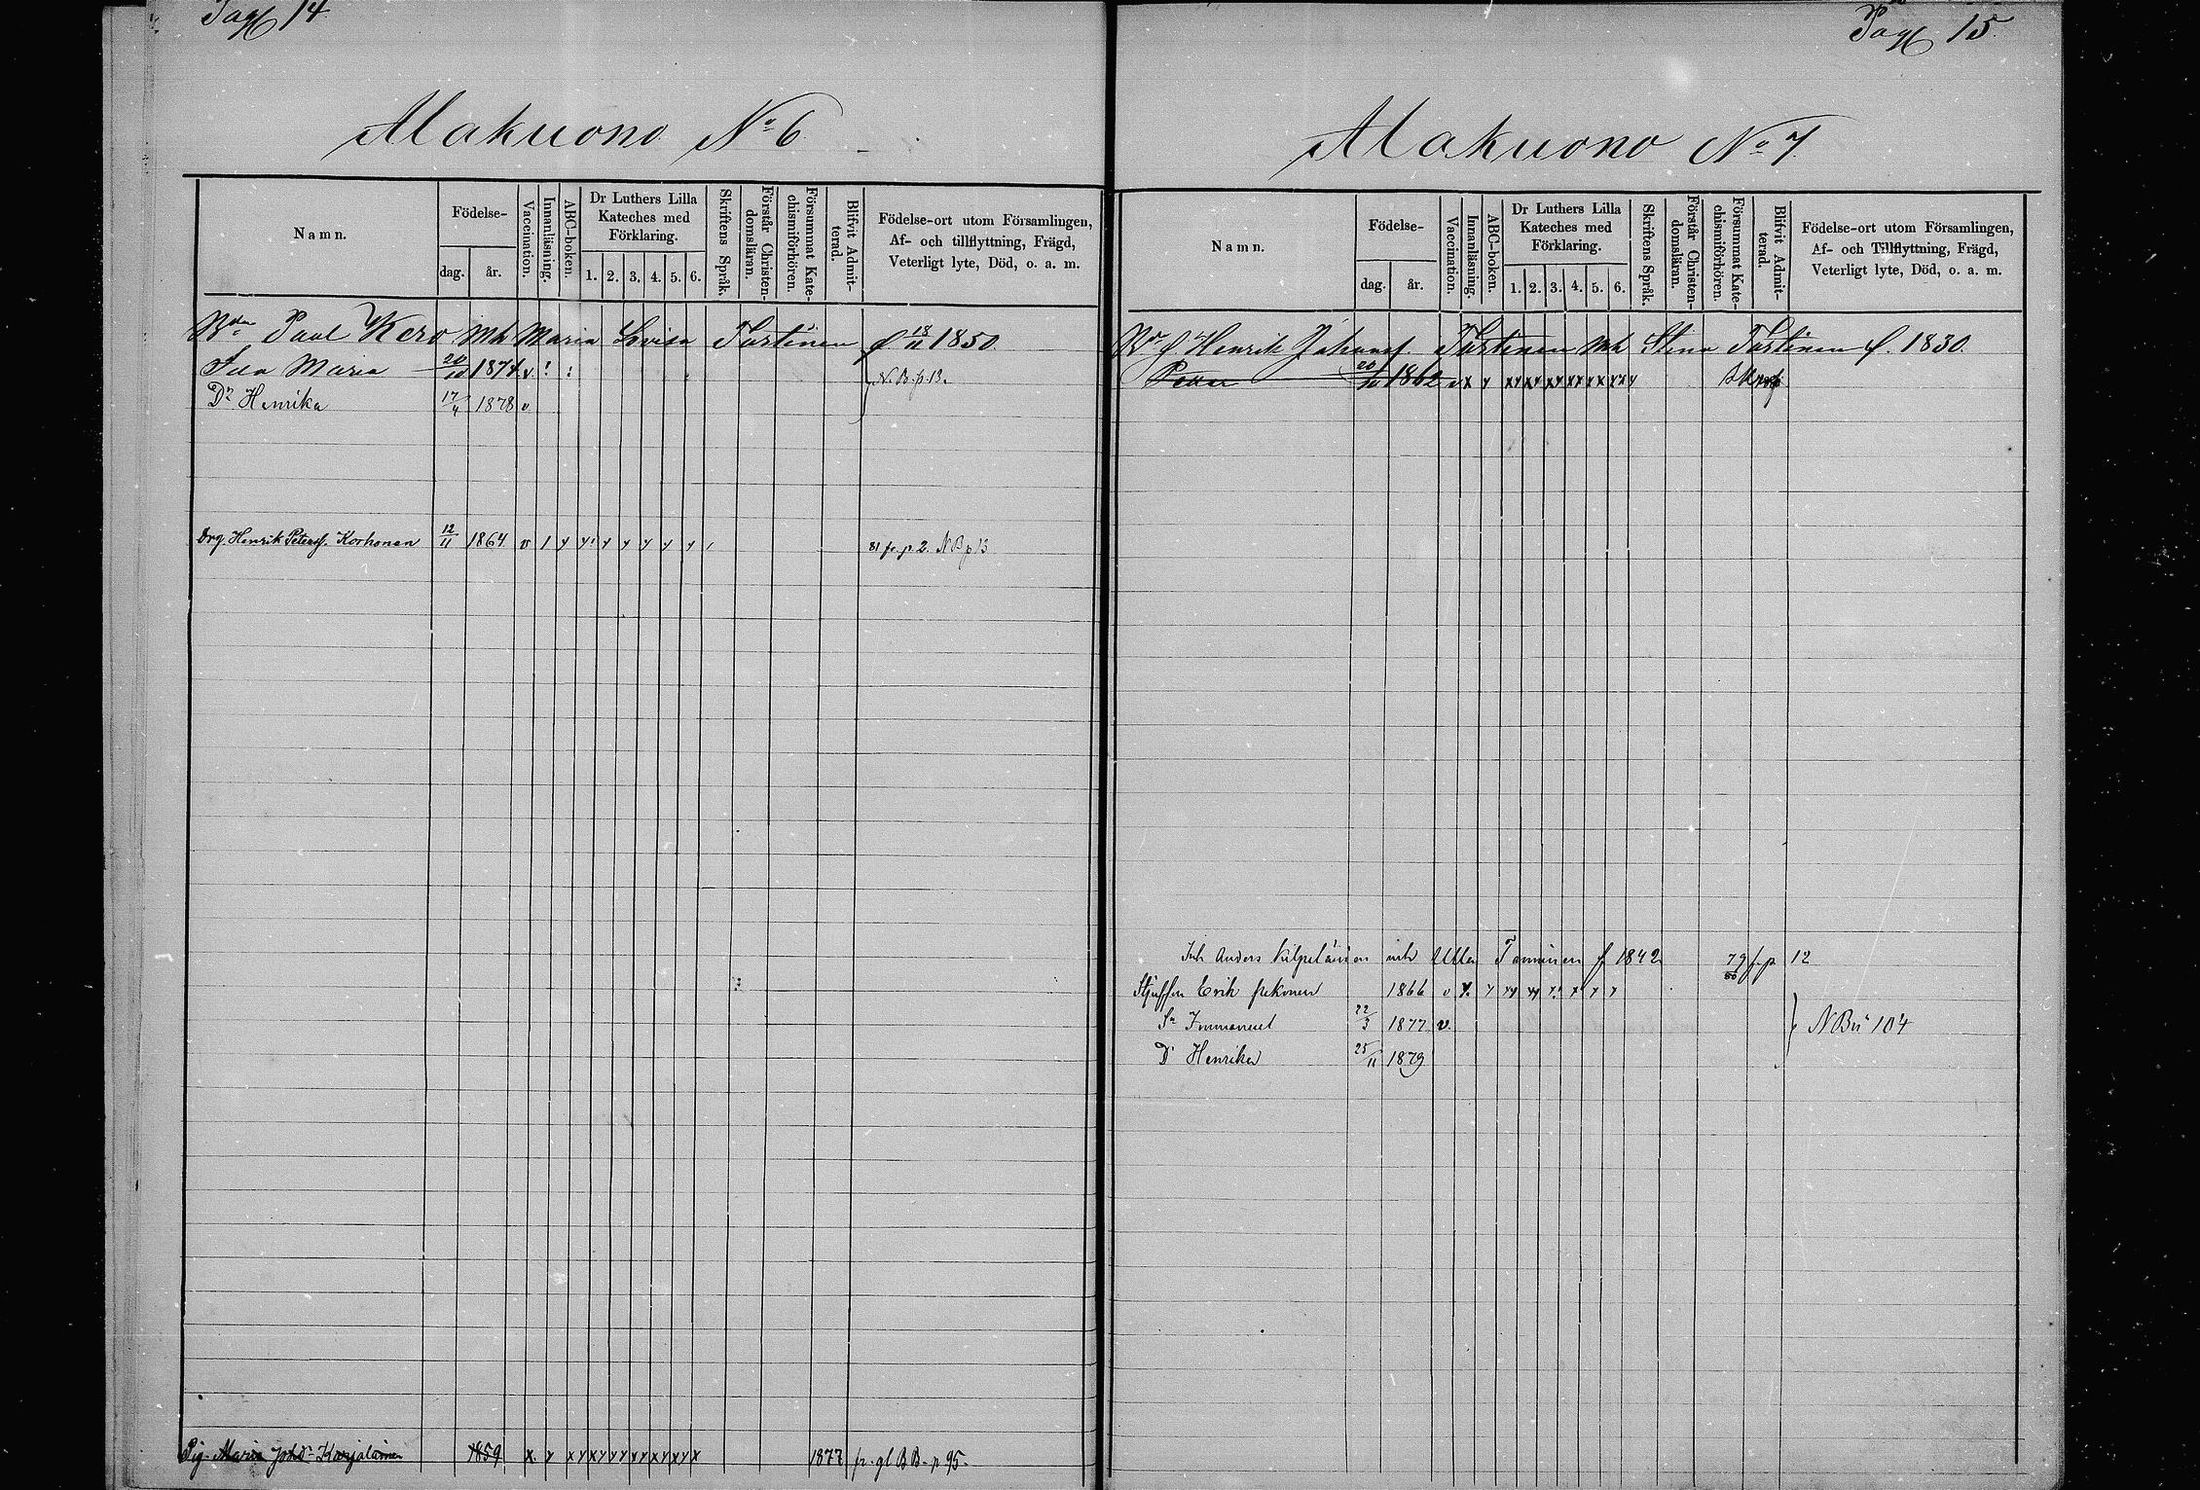 Pag 14
Alakuono No 6
Namn.
Födelse-
dag.
år.
Vaccination.
Innanläsning.
ABC-boken.
Dr Luthers Lilla
Kateches med
Förklaring.
1. 2. 3. 4. 5. 6.
Skriftens Språk.
Förstår Christen-
domsläran.
Försummat Kate-
chismiförhören.
Blifvit Admit-
terad.
Födelse-ort utom Församlingen,
Af- och tillflyttning, Frägd,
Veterligt lyte, Död, o. a. m.
Paul Kero Mh Maria Lovisa Turtinen f 18/11 1850.
Maria 1874 v
Dr Henrika 17/4 1878 v
N.B. p. 13.
Drg. Henrik Peterss. Korhonen 12/11 1864 v 1 y y y y y y y 81 fr. p 2. NB p 13
Pig. Maria Johdr Karjalainen 1859 x y xy xy yy xy xy xy x 1877 fr. gl BB. p 95.
Pag 15
Alakuono No 7.
Namn.
Födelse-
dag.
år.
Vaccination.
Innanläsning.
ABC-boken.
Dr Luthers Lilla
Kateches med
Förklaring.
1. 2. 3. 4. 5. 6.
Skriftens Språk.
Förstår Christen-
domsläran.
Försummat Kate-
chismiförhören.
Blifvit Admit-
terad.
Födelse-ort utom Församlingen,
Af- och Tillflyttning, Frägd,
Veterligt lyte, Död, o. a. m.
Henrik Johanss. Turtinen Mh Stina Turtinen f. 1830.
1862 v x y xy xy xy xx yx yxy
Inh Anders Kilpeläinen mh Ulla Tanninen f 1842 79/80 fr p 12
Stjufson Erik 1866 v x y xy xy y x y y
Sn Immanuel 22/3 1877 v.
Dr Henrika 25/11 1879
104